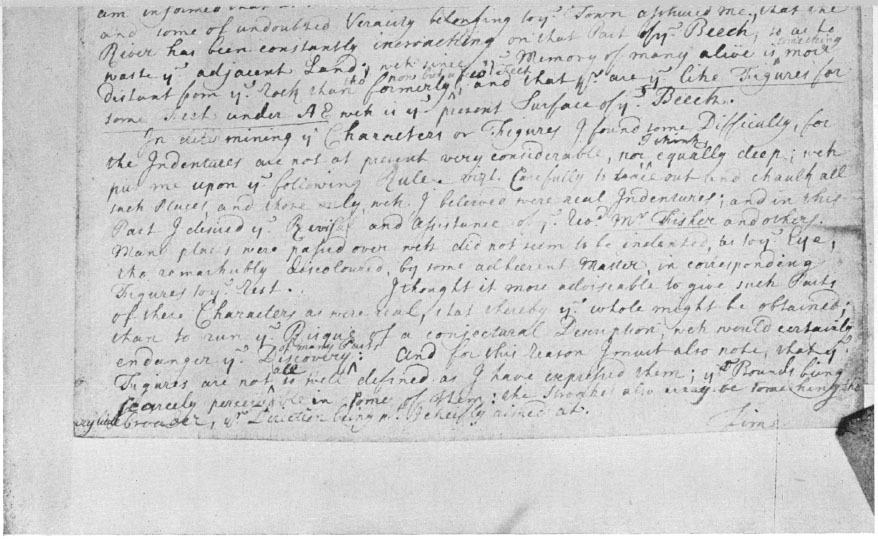 am informed that
and some of undoubted Veracity belonging to yᵉ Town assured me, that the
River has been constantly incroaching on that Part of yᵉ Beech, so as to
waste yᵉ adjacent Land; wch since yᵉ Memory of many alive is something more
distant from yᵉ Rock than formerly, tho now but a few Feet and that yʳ are yᵉ like Figures for
some Feet under AE wch is yᵉ present Surface of yᵉ Beech.
In determining yᵉ Characters or Figures I found some Difficulty, for
the Indentures are not at present very considerable, nor I think equally deep; wch
put me upon yᵉ following Rule vizt. Carefully to trace out and chaulk all
such Places and those only, wch I believed were real Indentures; and in this
Part I desired yᵉ Revisal and Assistance of yᵉ Revᵈ Mʳ Fisher and others.
Many places were passed over wch did not seem to be indented, as to yᵉ Eye,
tho remarkably discoloured, by some adherent Matter, in corresponding
Figures to yᵉ Rest. I thought it more adviseable to give such Parts
of these Characters as were real, that thereby yᵉ whole might be obtained;
than to run yᵉ Risque of a conjectural Description, wch would certainly
endanger yᵉ Discovery of many Parts: and for this Reason I must also note, that yᵉ
Figures are not all so well defined as I have expressed them; yᵉ Bounds being
scarcely perceivable in some of them: the Stroghes also may be something
very little broader, yʳ Direction being wt I chiefly aimed at.